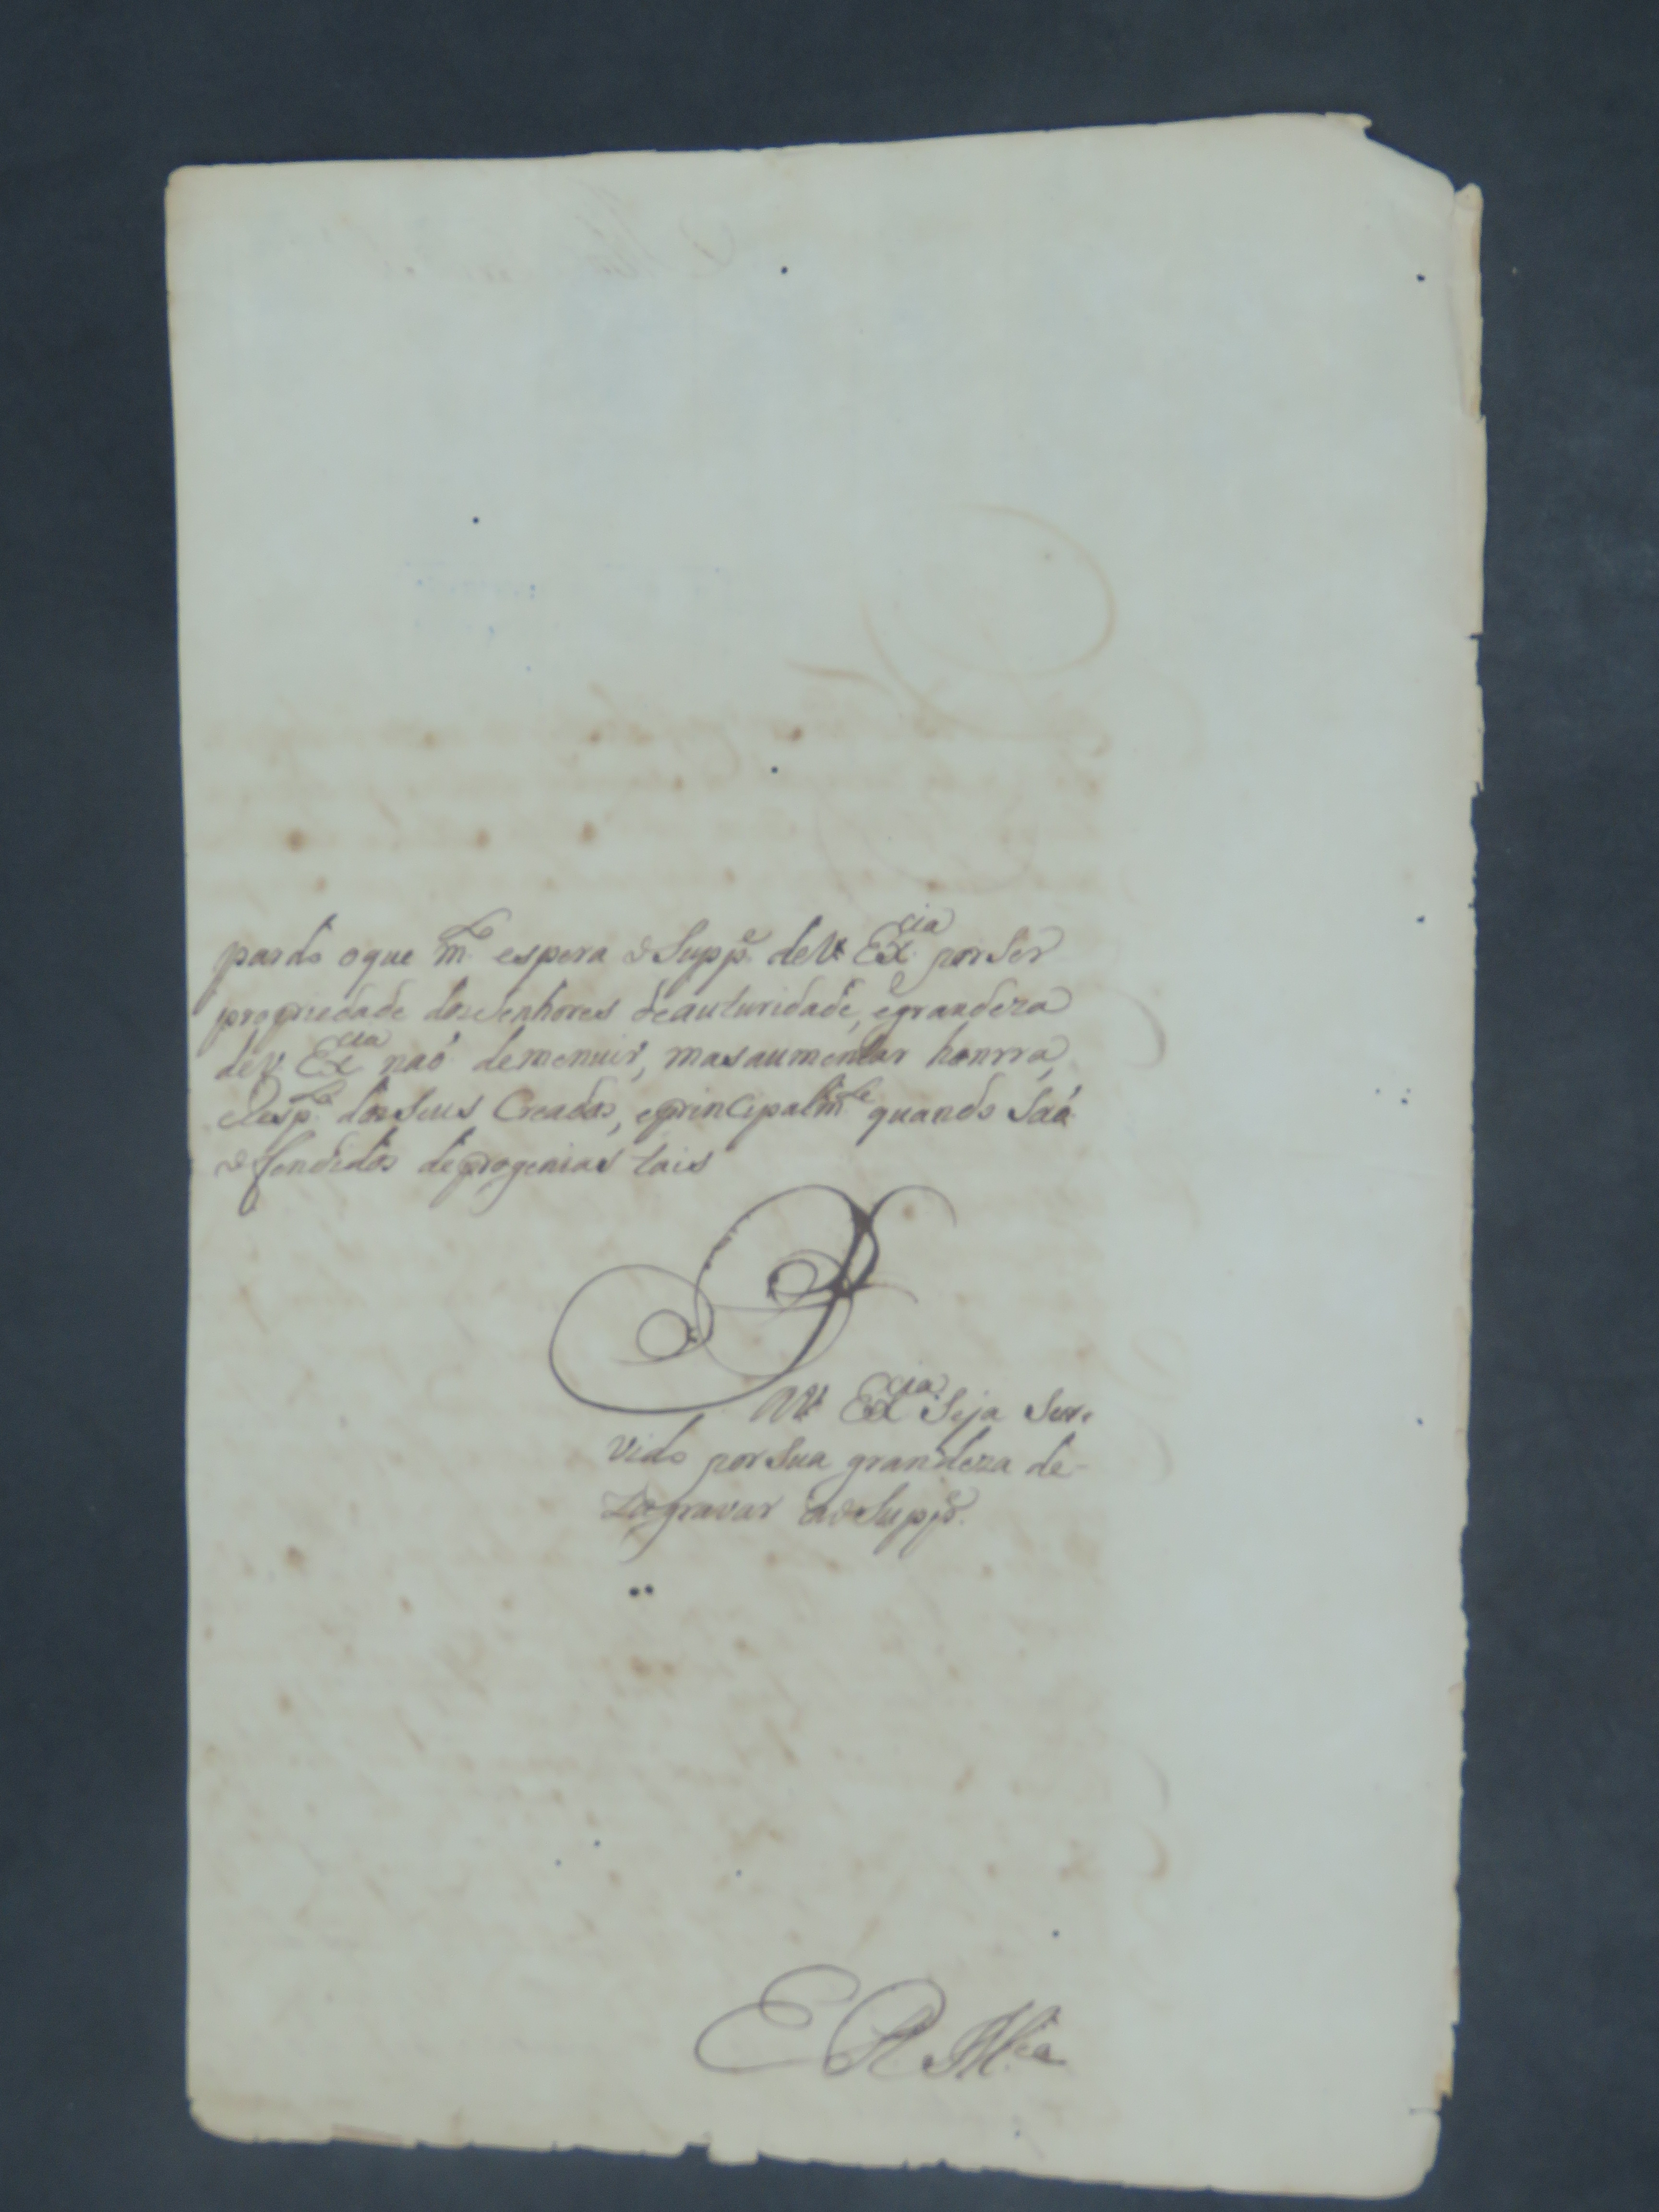 pardo o que m.to espera o Supp.e de V. Ex.cia por Ser
propriedade dos Senhores de auturidade, e grandeza
de V. Ex.cia naõ demenuir, mas aumentar honrra,
e Resp.to dos Seus Creados, e principalm.te quando Saõ
ofendidos de progenias tais
P
A V. Ex.cia Seja Ser-
vido por Sua grandeza de-
Zagravar ao Supp.e
E R M.ce